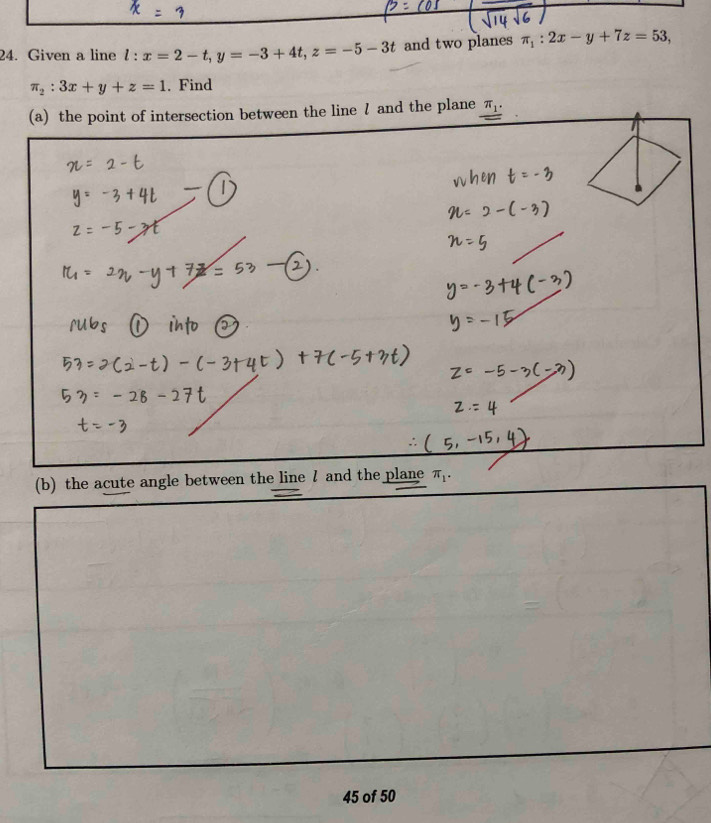 x = 3
β = cos
√14 √6
24. Given a line l : x = 2 − t, y = −3 + 4t, z = −5 − 3t and two planes π₁ : 2x − y + 7z = 53,
π₂ : 3x + y + z = 1. Find
(a) the point of intersection between the line l and the plane π₁.
x = 2 - t
y = -3 + 4t — ①
z = -5 - 3t
π₁ = 2x - y + 7z = 53 — ②.
subs ① into ②.
53 = 2(2-t) - (-3+4t) + 7(-5+3t)
53 = -28 - 27t
t = -3
when t = -3
x = 2 - (-3)
x = 5
y = -3 + 4(-3)
y = -15
z = -5 - 3(-3)
z = 4
∴ (5, -15, 4)
(b) the acute angle between the line l and the plane π₁.
45 of 50